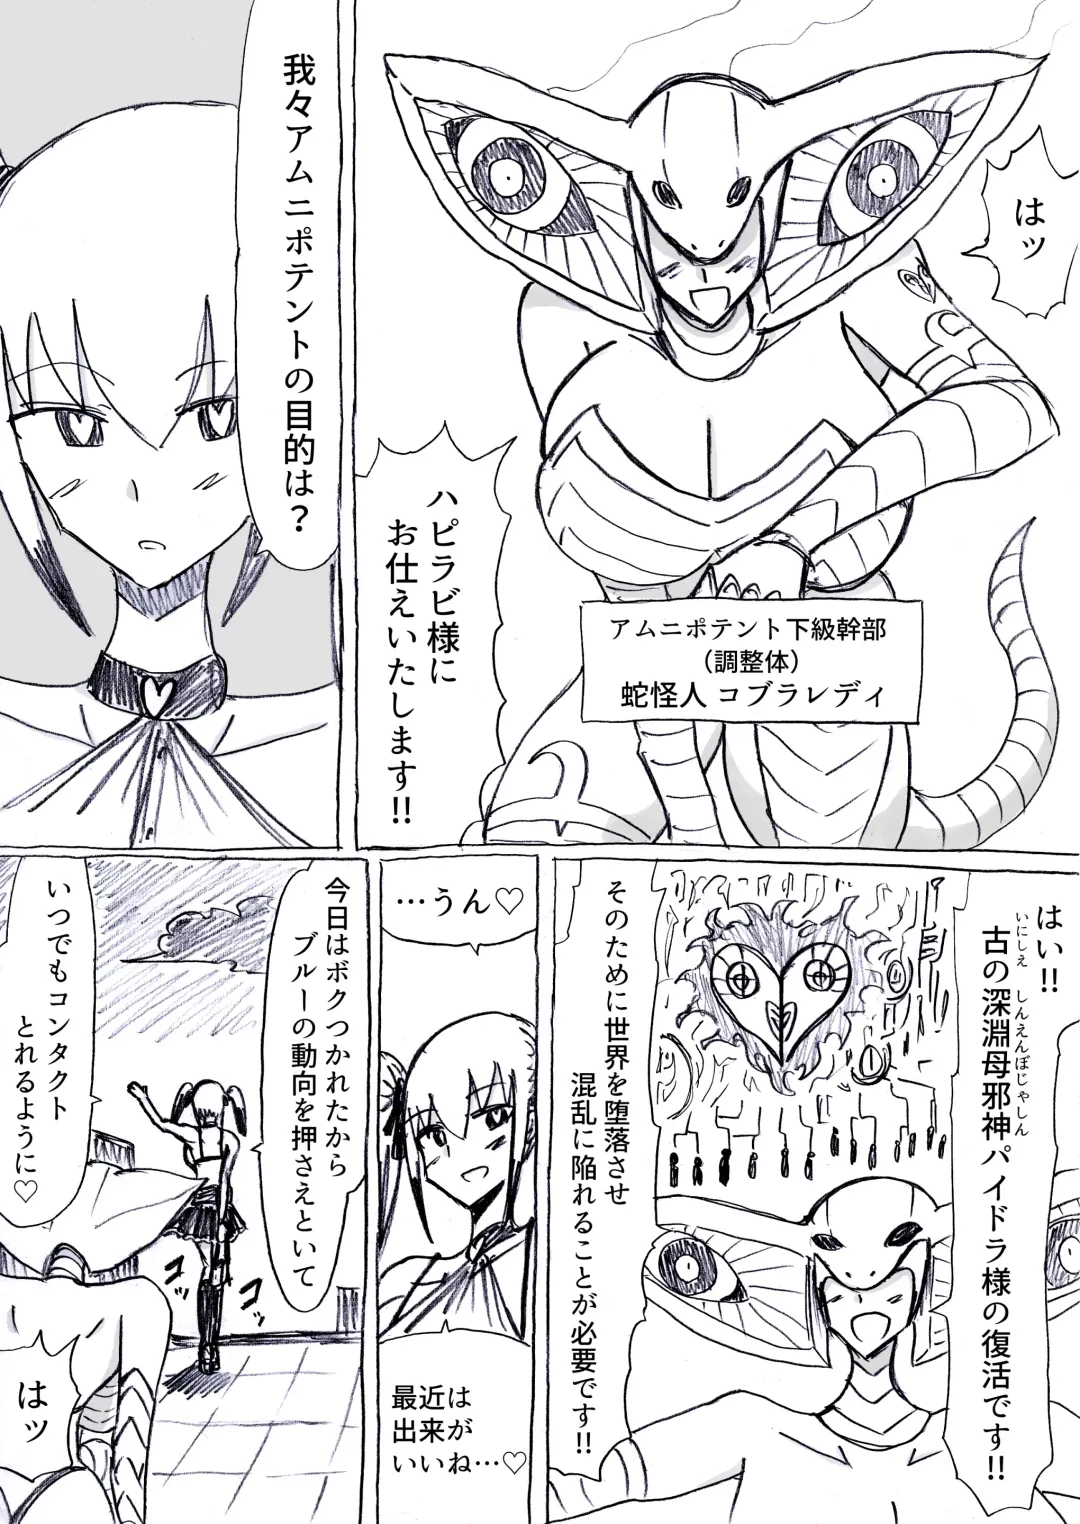 はッ
ハピラビ様に
お仕えいたします!!
アムニポテント下級幹部
（調整体）
蛇怪人 コブラレディ
我々アムニポテントの目的は？
はい!!
古の深淵母邪神パイドラ様の復活です!!
いにしえ しんえんぼじゃしん
そのために世界を堕落させ
混乱に陥れることが必要です!!
…うん♡
最近は
出来が
いいね…♡
今日はボクつかれたから
ブルーの動向を押さえといて
コッ
コッ
いつでもコンタクト
とれるように♡
はッ